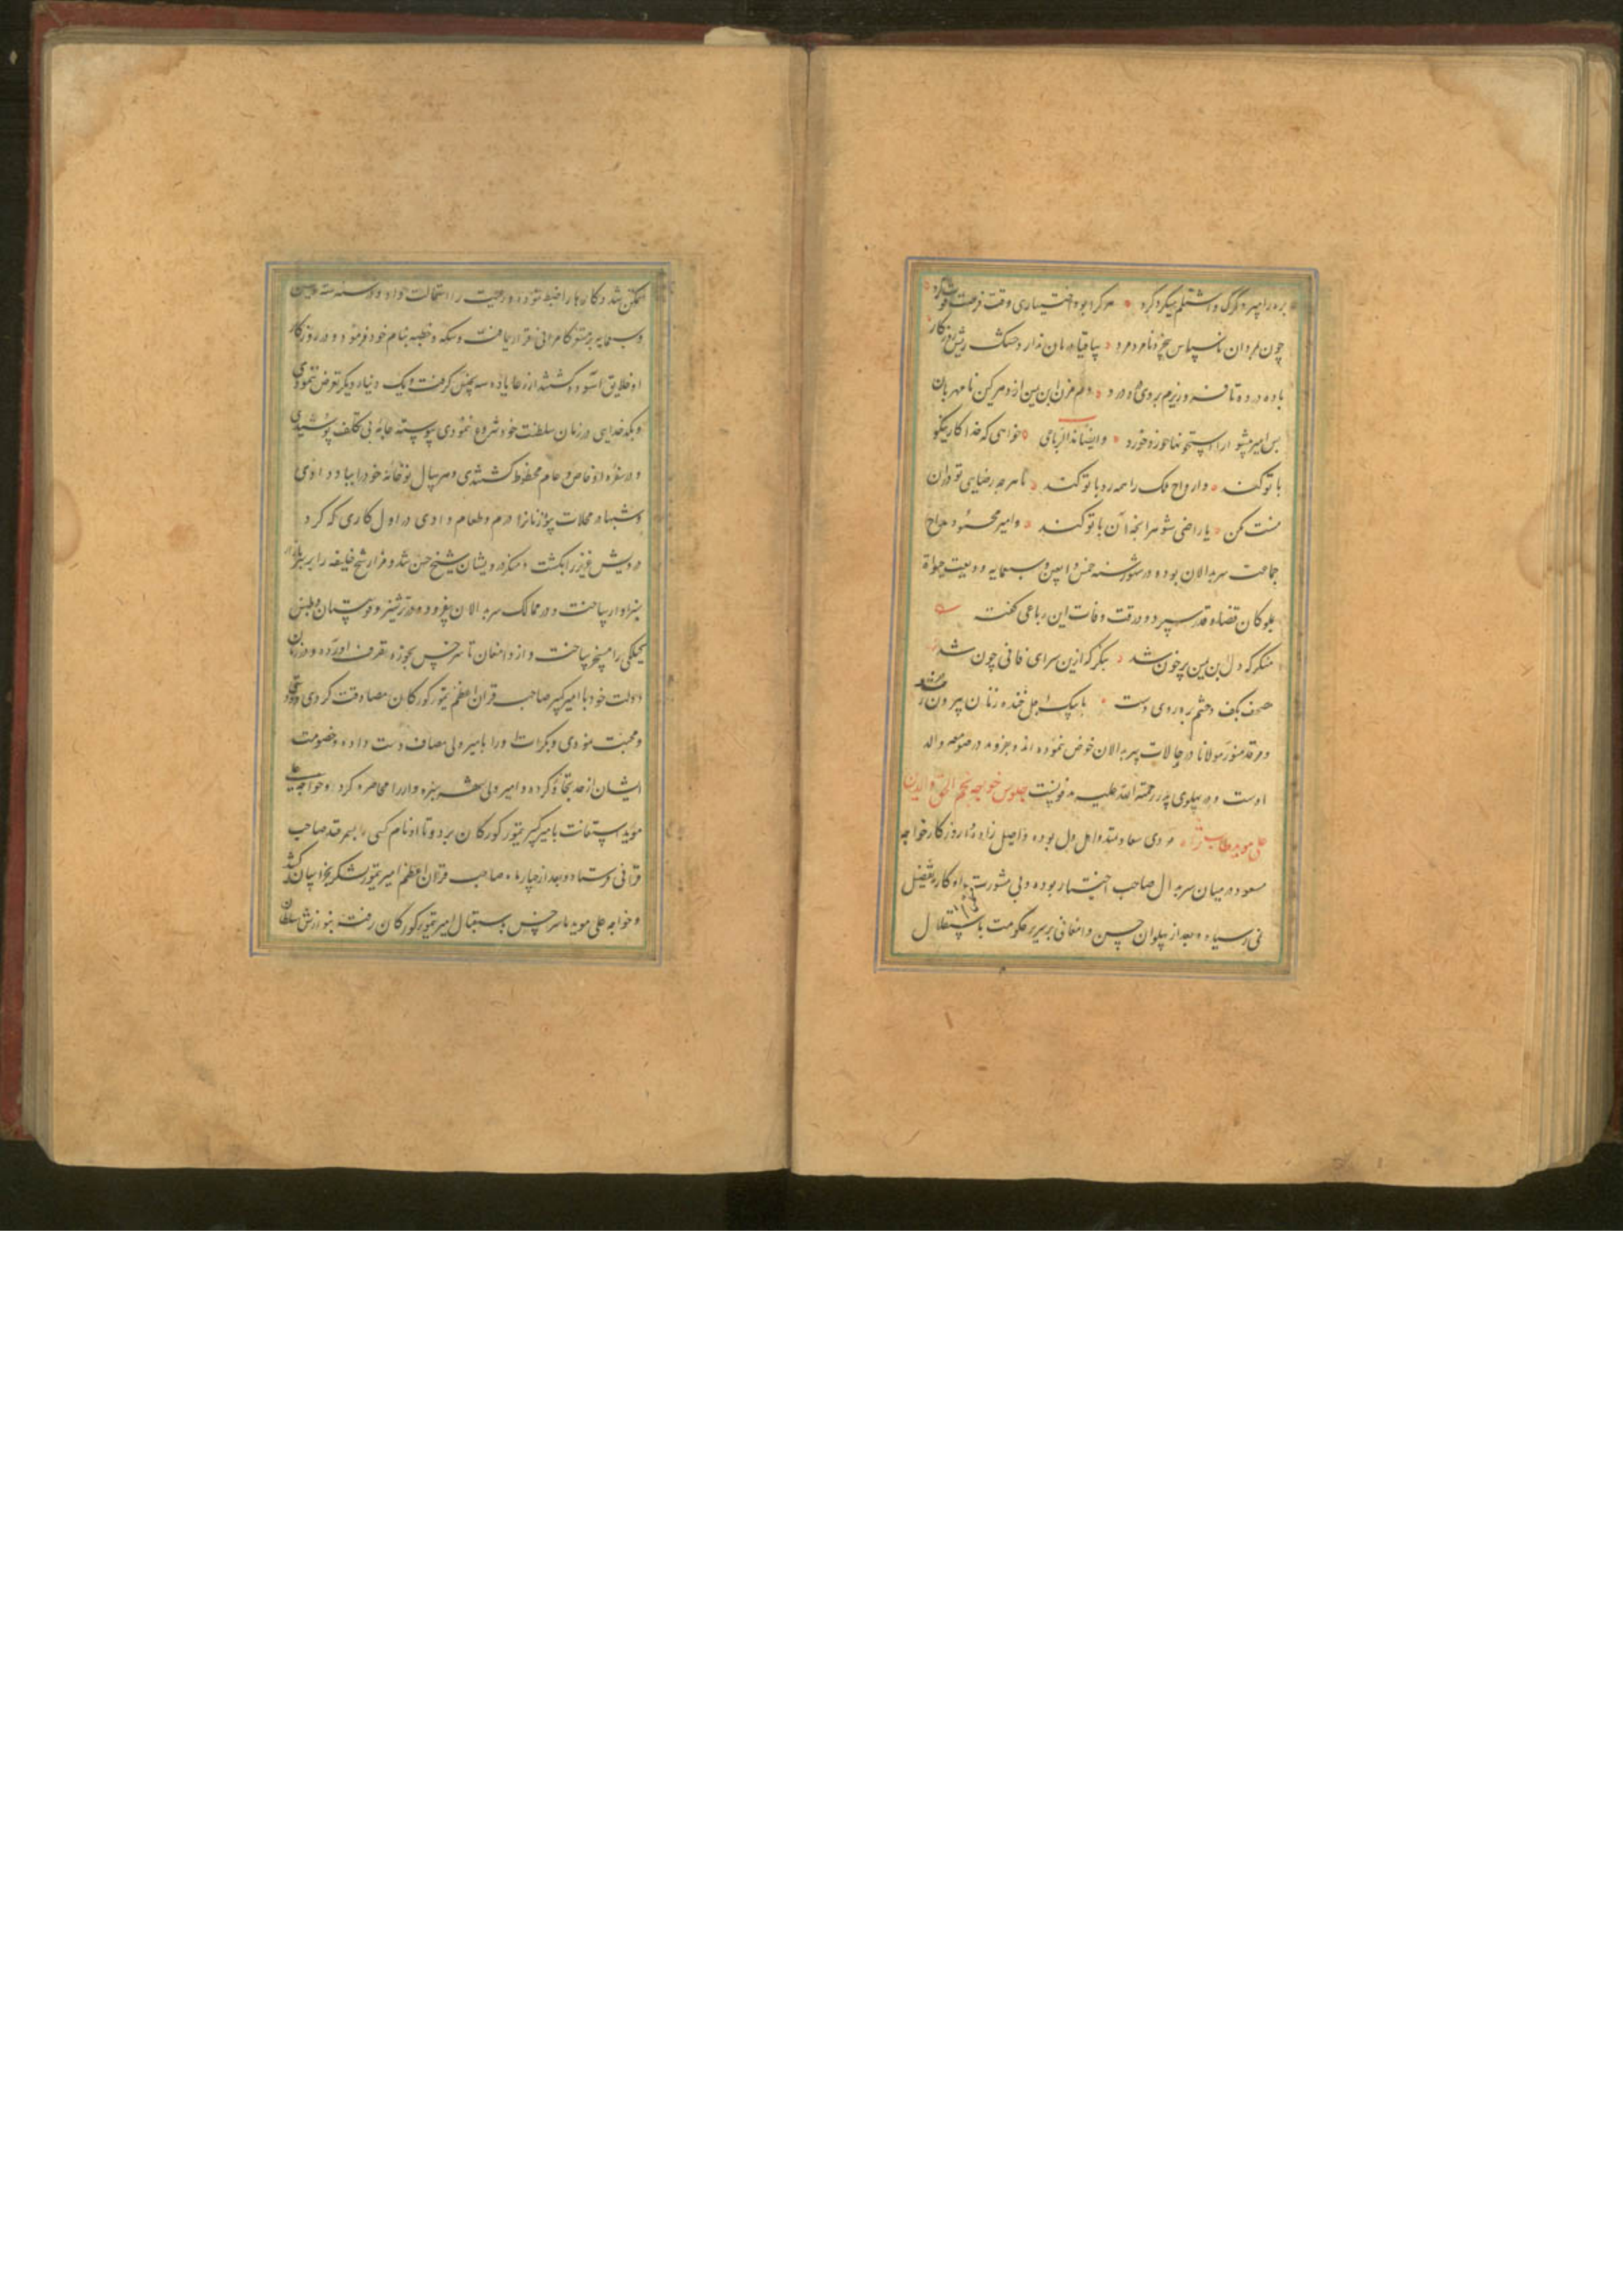 بره را میبرد گرگ و اشتلم میکرد کرد هر کرا بود اختیاری وقت فرصت فوت کرد
چون مردان ناسپاس
باده درده تا فرو ریزم بروی درد درد دم مزن ابن یمین از دهر کین نامهربان
بس امیر میشوا را استخوانها خورد خورد وایضا هذا الرباعی خواهی که خدا کار نکو
با تو کند وارواح ملک را همه رو با تو کند تا هر چه رضای تو در آن
نیست مکن یا راضی شو هر آنچه آن با تو کند وامیر محمود مداح
جماعت سربدالان بوده و در شهور سنه خمس واربعین وسبعمایه ودیعت حیوة
بموکلان قضا و قدر سپرد و در وقت وفات این رباعی گفت
منگر که دل ابن یمین پر خون شد بنگر که ازین سرای فانی چون شد
مصحف بکف و چشم بره روی بدوست با پیک اجل خنده زنان بیرون شد
ومرقد منور مولانا در صومعه والد
اوست و در پهلوی پدر رحمة الله علیه مدفونست جلوس خواجه نجم الحق والدین
علی موید طاب ثراه مردی سعادتمند و اهل دل بوده و اصیل زاده و از روزگار خواجه
مسعود در میان سربدال صاحب اختیار بوده و بی مشورت او کار بتفصیل
نمی رسیده و بعد از پهلوان حسن دامغانی بر سریر حکومت باستقلال
متمکن شد و کارها را ضبط نمود و رعیت را استمالت داد و در سنه ستة وستین
وسبعمایه برمستقر کامرانی قرار یافت و سکه و خطبه بنام خود فرمود و در روزگار
او خلایق آسوده گشتند از رعایا ده سه بجنس گرفت و یک دینار دیگر تعرض ننمودی
و بکدخدایی در زمان سلطنت خود شروع نمودی پیوسته جامه بی تکلف پوشیدی
و در سفره او خاص و عام محظوظ گشتندی و هر سال نو خانه خود را بیاد دادی
و شبها در محلات بیوه زنانرا درم و طعام دادی و اول کاری که کرد
درویش عزیز را بکشت و منکر درویشان شیخ حسن شد و مزار شیخ خلیفه را
سبزوار ساخت و در ممالک سربدالان بیفزود و ترشیز و قهستان و طبس
گیلکی را مسخر ساخت و از دامغان تا سرخس بحوزه تصرف آورده و در زمان
دولت خود با امیر کبیر صاحب قران اعظم تیمور کورکان مصادقت کردی
ومحبت نمودی و بکرات او را با میر ولی مصاف دست داده و خصومت
ایشان از حد تجاوز کرده و امیر ولی شهر سبزوار را محاصره کرد و خواجه علی
موید استعانت با امیر کبیر تیمور کورکان برد و تا او نام کسی بسمرقند صاحب
قرانی فرستاد و بعد از چهار ماه صاحب قران اعظم امیر تیمور لشکر بخراسان کشید
و خواجه علی موید تا سرخس باستقبال امیر تیمور کورکان رفت و بنوازش سلطان